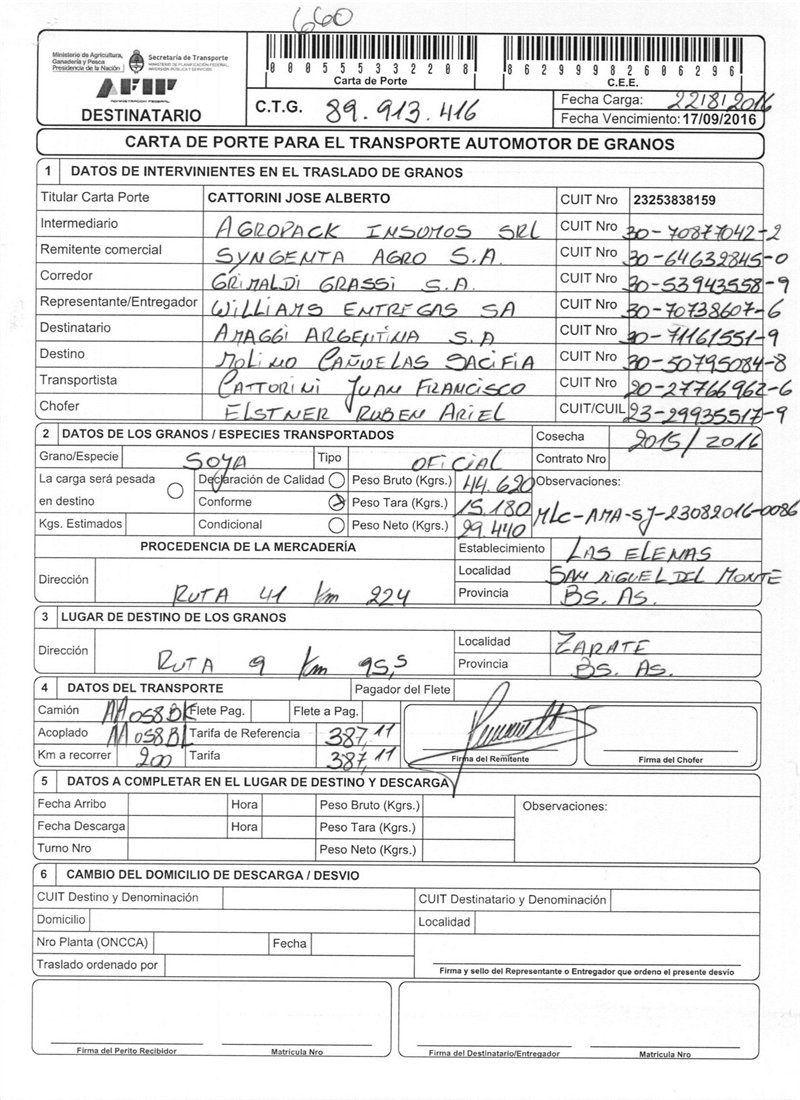 660
Ministerio de Agricultura, Ganadería y Pesca
Presidencia de la Nación
Secretaría de Transporte
MINISTERIO DE PLANIFICACIÓN FEDERAL, INVERSIÓN PÚBLICA Y SERVICIOS
000555332208
Carta de Porte
86299982606296
C.E.E.
AFIP
ADMINISTRACION FEDERAL
DESTINATARIO
C.T.G. 89.913.416
Fecha Carga: 22/8/2016
Fecha Vencimiento: 17/09/2016
CARTA DE PORTE PARA EL TRANSPORTE AUTOMOTOR DE GRANOS
1 DATOS DE INTERVINIENTES EN EL TRASLADO DE GRANOS
Titular Carta Porte CATTORINI JOSE ALBERTO CUIT Nro 23253838159
Intermediario AGROPACK INSUMOS SRL CUIT Nro 30-70877042-2
Remitente comercial SYNGENTA AGRO S.A. CUIT Nro 30-64632845-0
Corredor GRIMALDI GRASSI S.A. CUIT Nro 30-53943558-9
Representante/Entregador WILLIAMS ENTREGAS SA CUIT Nro 30-70738607-6
Destinatario AMAGGI ARGENTINA S.A CUIT Nro 30-71161551-9
Destino MOLINO CAÑUELAS SACIFIA CUIT Nro 30-50795084-8
Transportista CATTORINI JUAN FRANCISCO CUIT Nro 20-27766962-6
Chofer ELSTNER RUBEN ARIEL CUIT/CUIL 23-29935517-9
2 DATOS DE LOS GRANOS / ESPECIES TRANSPORTADOS Cosecha 2015/2016
Grano/Especie SOYA Tipo OFICIAL Contrato Nro
La carga será pesada en destino Declaración de Calidad Peso Bruto (Kgrs.) 44.620 Observaciones:
Conforme Peso Tara (Kgrs.) 15.180 MLC-AMA-SJ-23082016-0086
Kgs. Estimados Condicional Peso Neto (Kgrs.) 29.440
PROCEDENCIA DE LA MERCADERÍA Establecimiento LAS ELENAS
Localidad SAN MIGUEL DEL MONTE
Dirección RUTA 41 Km 224 Provincia BS. AS.
3 LUGAR DE DESTINO DE LOS GRANOS
Localidad ZARATE
Dirección RUTA 9 Km 95,5 Provincia BS. AS.
4 DATOS DEL TRANSPORTE Pagador del Flete
Camión AA058BK Flete Pag. Flete a Pag.
Acoplado AA058BL Tarifa de Referencia 387,11
Km a recorrer 200 Tarifa 387,11
Firma del Remitente Firma del Chofer
5 DATOS A COMPLETAR EN EL LUGAR DE DESTINO Y DESCARGA
Fecha Arribo Hora Peso Bruto (Kgrs.) Observaciones:
Fecha Descarga Hora Peso Tara (Kgrs.)
Turno Nro Peso Neto (Kgrs.)
6 CAMBIO DEL DOMICILIO DE DESCARGA / DESVIO
CUIT Destino y Denominación CUIT Destinatario y Denominación
Domicilio Localidad
Nro Planta (ONCCA) Fecha
Traslado ordenado por
Firma y sello del Representante o Entregador que ordeno el presente desvio
Firma del Perito Recibidor Matricula Nro Firma del Destinatario/Entregador Matricula Nro